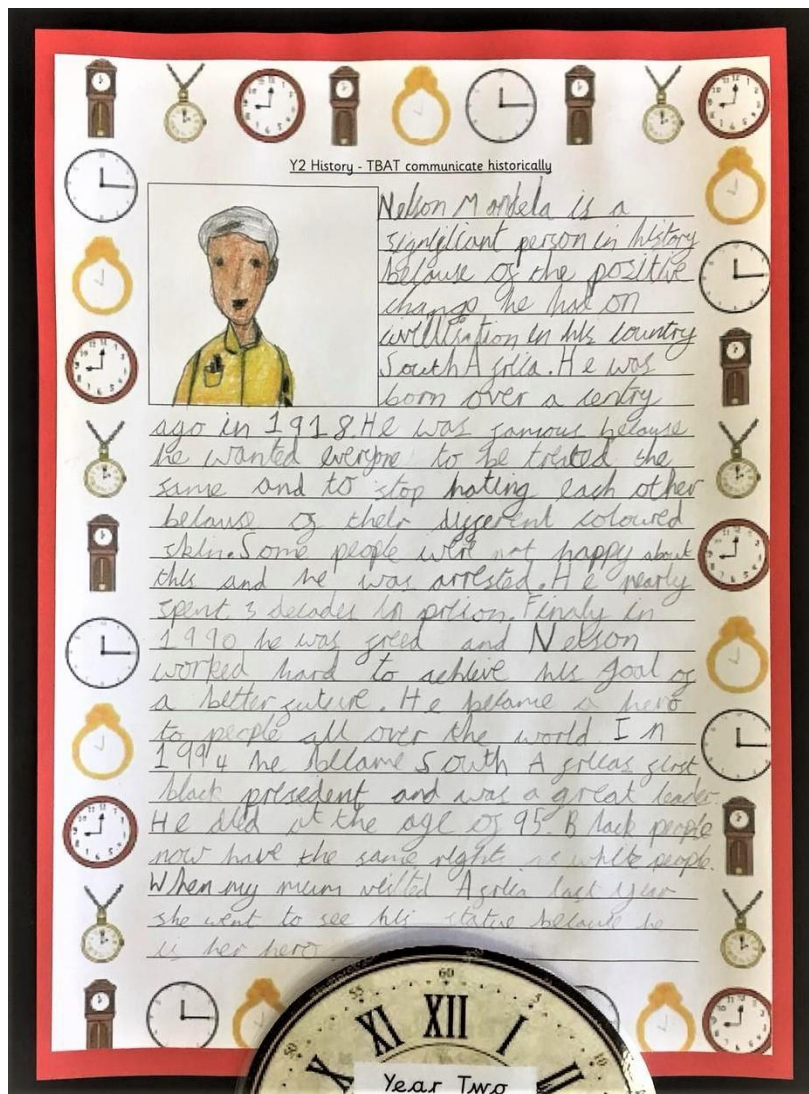 Y2 History - TBAT communicate historically
Nelson Mandela is a
significant person in history
because of the positive
change he had on
civilisation in his country
South Africa. He was
born over a centry
ago in 1918. He was famous because
he wanted everyone to be treated the
same and to stop hating each other
because of their different coloured
skin. Some people were not happy about
this and he was arrested. He nearly
spent 3 decades in prison. Finaly in
1990 he was freed and Nelson
worked hard to achieve his goal of
a better future. He became a hero
to people all over the world. In
1994 he became South Africas first
black president and was a great leader.
He died at the age of 95. Black people
now have the same rights as white people.
When my mum visited Africa last year
she went to see his statue because he
is her hero
55 60 5
50 10
X XI XII I II
Year Two